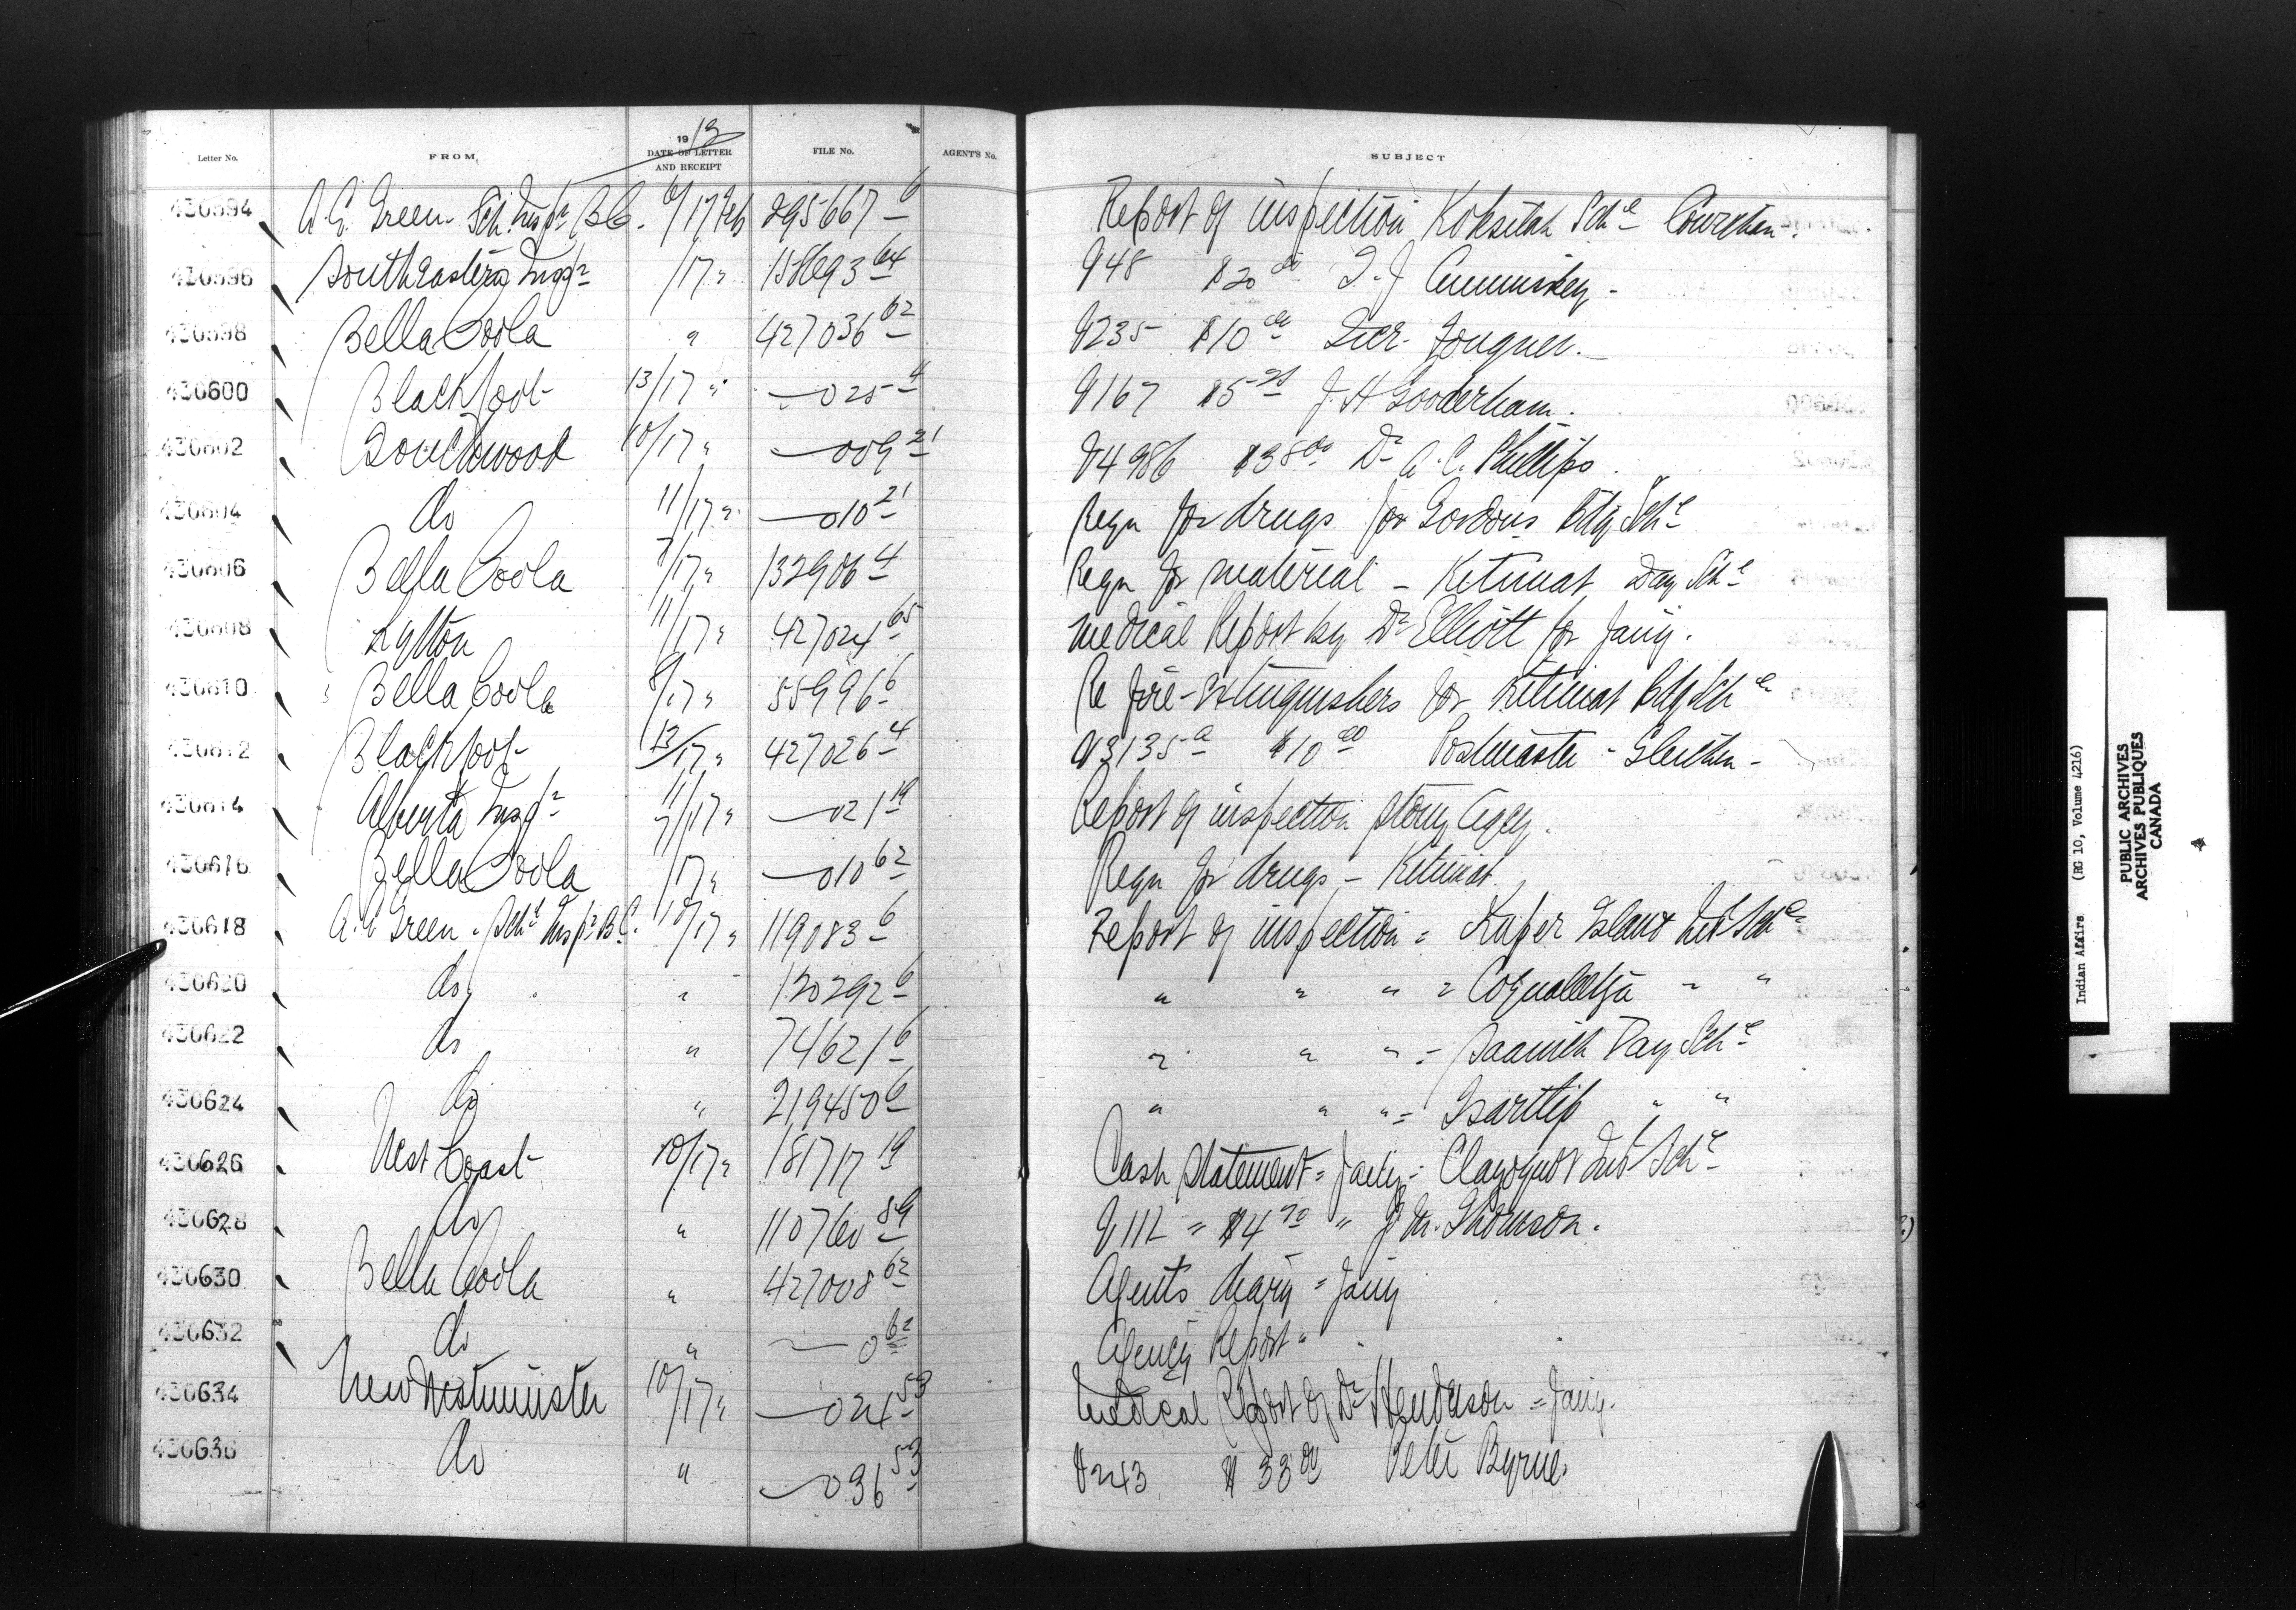 Letter No. FROM 1913 DATE OF LETTER AND RECEIPT FILE No. AGENT'S No. SUBJECT
430594 A.E. Green Sch. Insp r B.C. 6/17 Feb 295667-6 Report of inspection Koksilah Sch l Cowichan.
430596 South Eastern Insp r /17 " 158693 64 V948 $20 00 T. J. Cummiskey -
430598 Bella Coola " 427036 62 V235 $10 00 Iver Fougner. -
430600 Blackfoot 13/17 " — 025 4 V167 $5 25 J. H. Gooderham.
430602 Touchwood 10/17 " — 009 21 V4986 $38 00 Dr A. C. Phillips.
430604 do 11/17 " — 010 21 Reqn for drugs for Gordons Bdg Sch l
430606 Bella Coola 7/17 " 132906 4 Reqn for material - Kitimat Day Sch l
430608 Lytton 11/17 " 427024 65 Medical Report by Dr Elliott for Jany.
430610 Bella Coola 8/17 " 55996 6 Re fire-extinguishers for Kitimat Bdg Sch l
430612 Blackfoot 13/17 " 427026 4 V3135 a $10 00 Postmaster - Gleichen -
430614 Alberta Insp r 11/17 " — 021 19 Report of inspection Stony Agcy.
430616 Bella Coola /17 " — 010 62 Reqn for drugs - Kitimat
430618 A. E. Green - Sch l Insp r B.C. 10/17 " 119083 6 Report of inspection = Kuper Island Ind Sch l
430620 do " 120292 6 " " " = Coqualeetza " "
430622 do " 74621 6 " " " = Saanich Day Sch l
430624 do " 219450 6 " " " = Tsartlip " "
430626 West Coast 10/17 " 181717 19 Cash Statement = Jany = Clayoquot Ind Sch l
430628 do " 110760 89 V112 = $4 70 "
430630 Bella Coola " 427008 62 Agents diary = Jany
430632 do " — 0 62 Agency Report "
430634 New Westminster 10/17 " — 024 53 Medical Report of Dr Henderson = Jany.
430636 do " — 036 53 V243 $33 00 Peter Byrne.
Indian Affairs (RG 10, Volume 4216)
PUBLIC ARCHIVES
ARCHIVES PUBLIQUES
CANADA